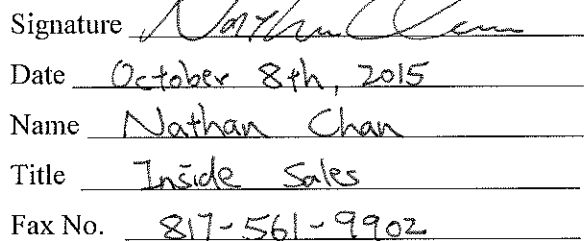 Signature Nathan Chan
Date October 8th, 2015
Name Nathan Chan
Title Inside Sales
Fax No. 817-561-9902